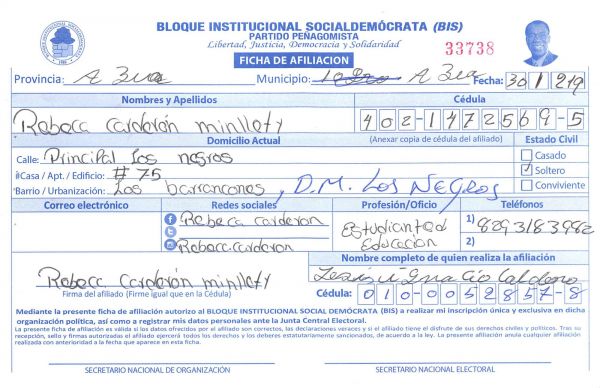 BLOQUE INSTITUCIONAL SOCIALDEMÓCRATA (BIS)
PARTIDO PEÑAGOMISTA
Libertad, Justicia, Democracia y Solidaridad
33738
FICHA DE AFILIACION
Provincia: Azua Municipio: Azua Fecha: 30/1/219
Nombres y Apellidos Cédula
Rebeca carderón minllety 402-1472569-5
Domicilio Actual (Anexar copia de cédula del afiliado) Estado Civil
Calle: Principal los negros Casado
#Casa / Apt. / Edificio: #75 Soltero
Barrio / Urbanización: Los barrancones, D.M. Los Negros Conviviente
Correo electrónico Redes sociales Profesión/Oficio Teléfonos
Rebeca carderon Estudiante d Educacion 1) 8293183982
Rebecca.carderon 2)
Nombre completo de quien realiza la afiliación
Rebeca carderón minllety Ignacio
Firma del afiliado (Firme igual que en la Cédula) Cédula: 010-0052857-8
Mediante la presente ficha de afiliación autorizo al BLOQUE INSTITUCIONAL SOCIAL DEMÓCRATA (BIS) a realizar mi inscripción única y exclusiva en dicha
organización política, así como a registrar mis datos personales ante la Junta Central Electoral.
La presente ficha de afiliación es válida si los datos ofrecidos por el afiliado son correctos, las declaraciones veraces y si el afiliado tiene el disfrute de sus derechos civiles y políticos. Tras su
recepción, sello y firmas autorizadas el afiliado ejercerá todos los derechos y los deberes estatutariamente sancionados, de acuerdo a la ley. La presente afiliación anula cualquier afiliación
realizada con anterioridad a la fecha que aparece en esta ficha.
SECRETARIO NACIONAL DE ORGANIZACIÓN SECRETARIO NACIONAL ELECTORAL